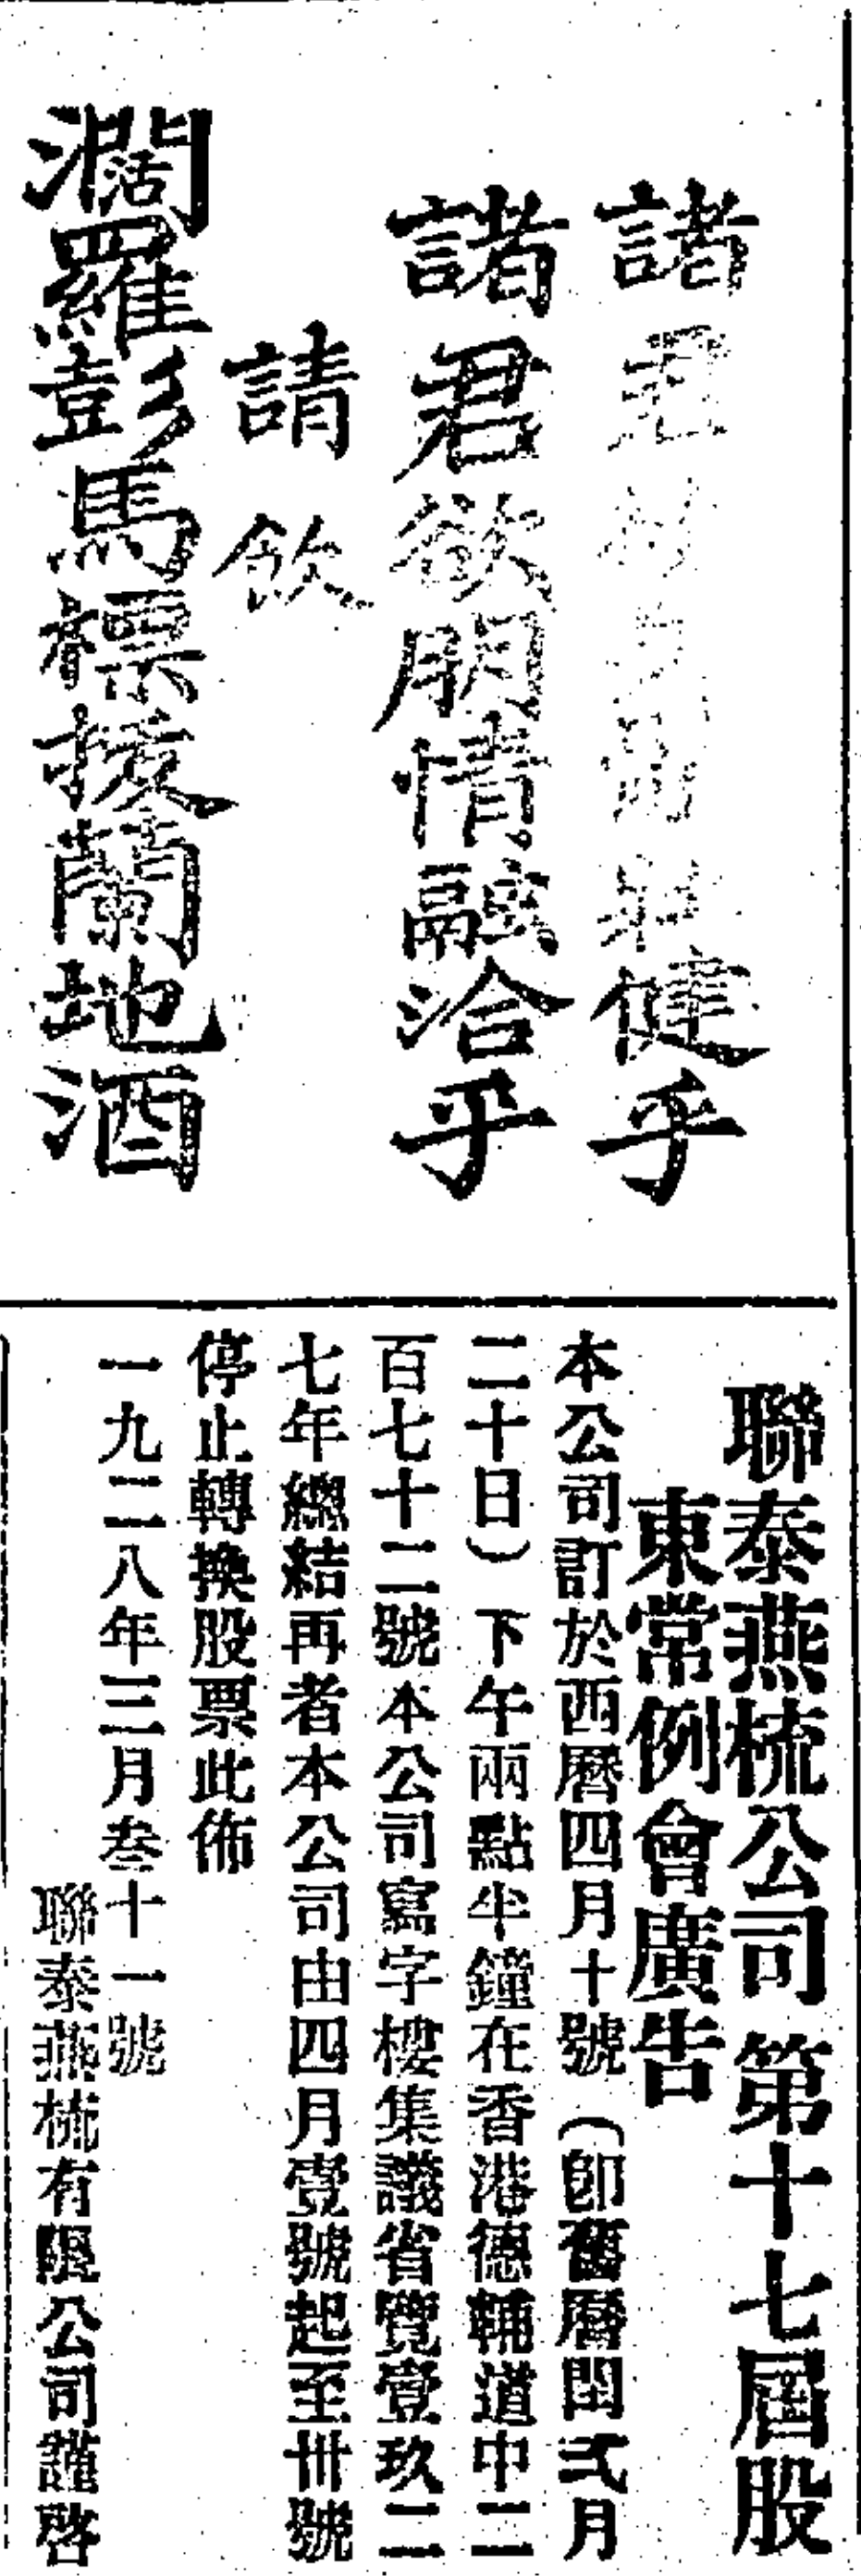 諸君
健乎
諸君欲朋情融洽乎
請飲
濶羅彭馬標拔蘭地酒
聯泰燕梳公司第十七屆股
東常例會廣告
本公司訂於西曆四月十號（卽舊曆閏弍月
二十日）下午兩點半鐘在香港德輔道中二
百七十二號本公司寫字樓集議省覽壹玖二
七年總結再者本公司由四月壹號起至卅號
停止轉換股票此佈
一九二八年三月叁十一號
聯泰燕梳有限公司謹啓